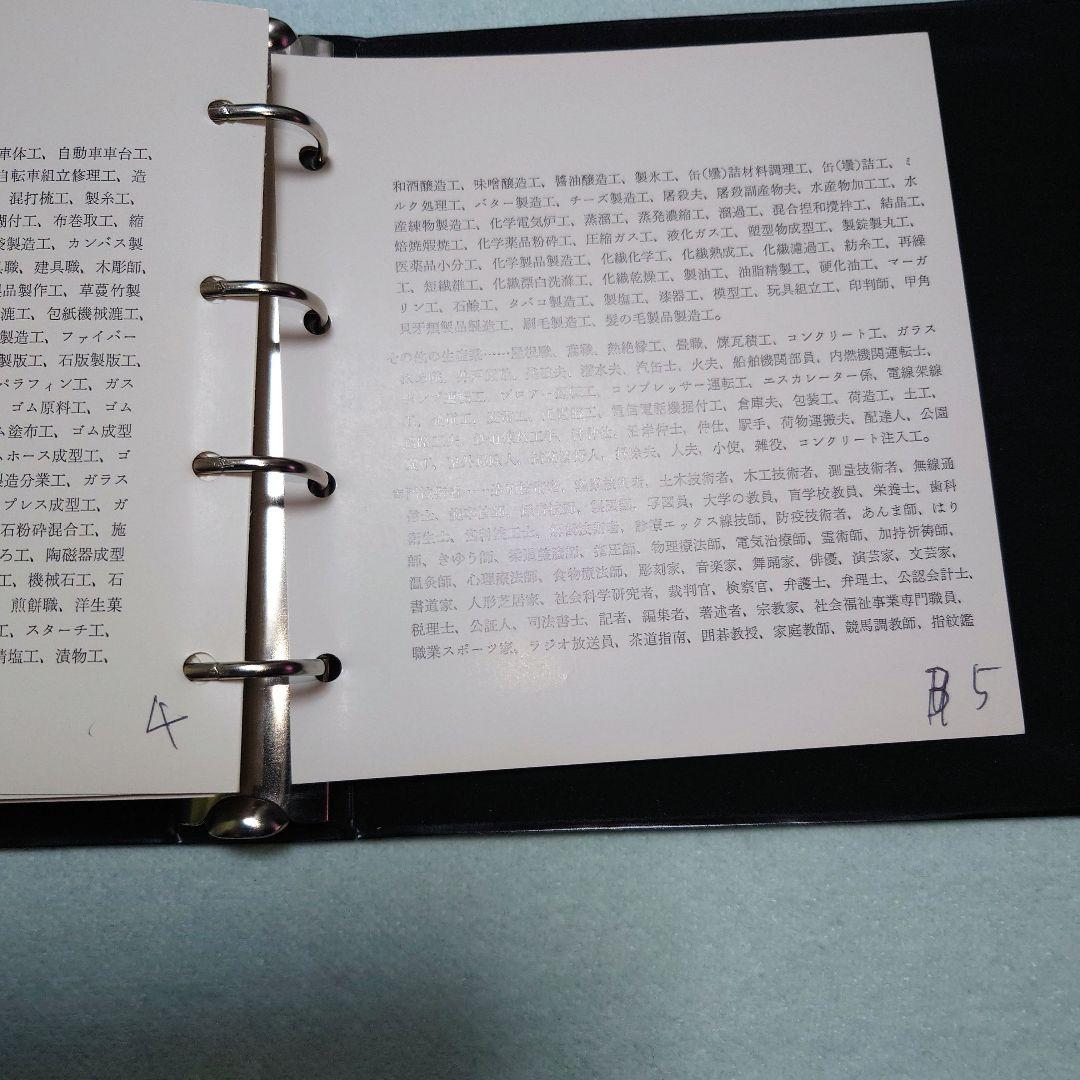 車体工、自動車車台工、
自転車組立修理工、造
混打梳工、製糸工、
糊付工、布巻取工、縮
袋製造工、カンバス製
具職、建具職、木彫師、
製品製作工、草蔓竹製
漉工、包紙機械漉工、
製造工、ファイバー
製版工、石版製版工、
パラフィン工、ガス
ゴム原料工、ゴム
ム塗布工、ゴム成型
ムホース成型工、ゴ
製造分業工、ガラス
プレス成型工、ガ
石粉砕混合工、施
ろ工、陶磁器成型
工、機械石工、石
煎餅職、洋生菓
工、スターチ工、
精塩工、漬物工、
4
和酒醸造工、味噌醸造工、醬油醸造工、製氷工、缶(壜)詰材料調理工、缶(壜)詰工、ミ
ルク処理工、バター製造工、チーズ製造工、屠殺夫、屠殺副産物夫、水産物加工工、水
産練物製造工、化学電気炉工、蒸溜工、蒸発濃縮工、溜過工、混合捏和攪拌工、結晶工、
焙焼煆焼工、化学薬品粉砕工、圧縮ガス工、液化ガス工、塑型物成型工、製錠製丸工、
医薬品小分工、化学製品製造工、化繊化学工、化繊熟成工、化繊濾過工、紡糸工、再繰
工、短繊維工、化繊漂白洗滌工、化繊乾燥工、製油工、油脂精製工、硬化油工、マーガ
リン工、石鹼工、タバコ製造工、製塩工、漆器工、模型工、玩具組立工、印判師、甲角
貝牙類製品製造工、刷毛製造工、髪の毛製品製造工。
その他の生産業……屋根職、鳶職、熱絶縁工、畳職、煉瓦積工、コンクリート工、ガラス
潜水夫、汽缶士、火夫、船舶機関部員、内燃機関運転士、
コンプレッサー運転工、エスカレーター係、電線架線
電信電話機据付工、倉庫夫、包装工、荷造工、土工、
沿岸仲士、仲仕、駅手、荷物運搬夫、配達人、公園
掃除夫、人夫、小使、雑役、コンクリート注入工。
土木技術者、木工技術者、測量技術者、無線通
製図師、写図員、大学の教員、盲学校教員、栄養士、歯科
衛生士、診療エックス線技師、防疫技術者、あんま師、はり
師、きゆう師、柔道整復師、指圧師、物理療法師、電気治療師、霊術師、加持祈祷師、
温灸師、心理療法師、食物療法師、彫刻家、音楽家、舞踊家、俳優、演芸家、文芸家、
書道家、人形芝居家、社会科学研究者、裁判官、検察官、弁護士、弁理士、公認会計士、
税理士、公証人、司法書士、記者、編集者、著述者、宗教家、社会福祉事業専門職員、
職業スポーツ家、ラジオ放送員、茶道指南、囲碁教授、家庭教師、競馬調教師、指紋鑑
5